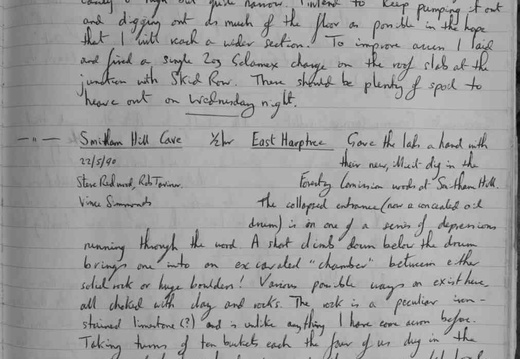 candy & high but quite narrow. I intend to keep pumping it out
and digging out as much of the floor as possible in the hope
that I will reach a wider section. To improve access I laid
and fired a single 2oz Gelamex charge on the roof slab at the
junction with Skid Row. There should be plenty of spoil to
heave out on Wednesday night.
— " — Smitham Hill Cave ½hr East Harptree Gave the lads a hand with
22/5/90 their new, illicit dig in the
Steve Redwood, Rob Taviner, Forestry Comission woods at Smitham Hill.
Vince Simmonds The collapsed entrance (now a concealed oil
drum) is in one of a series of depressions
running through the wood. A short climb down below the drum
brings one into an excavated "chamber" between either
solid rock or huge boulders! Various possible ways on exist here,
all choked with clay and rocks. The rock is a peculiar iron-
stained limestone (?) and is unlike anything I have ever seen before.
Taking turns of ten buckets each the four of us dug in the